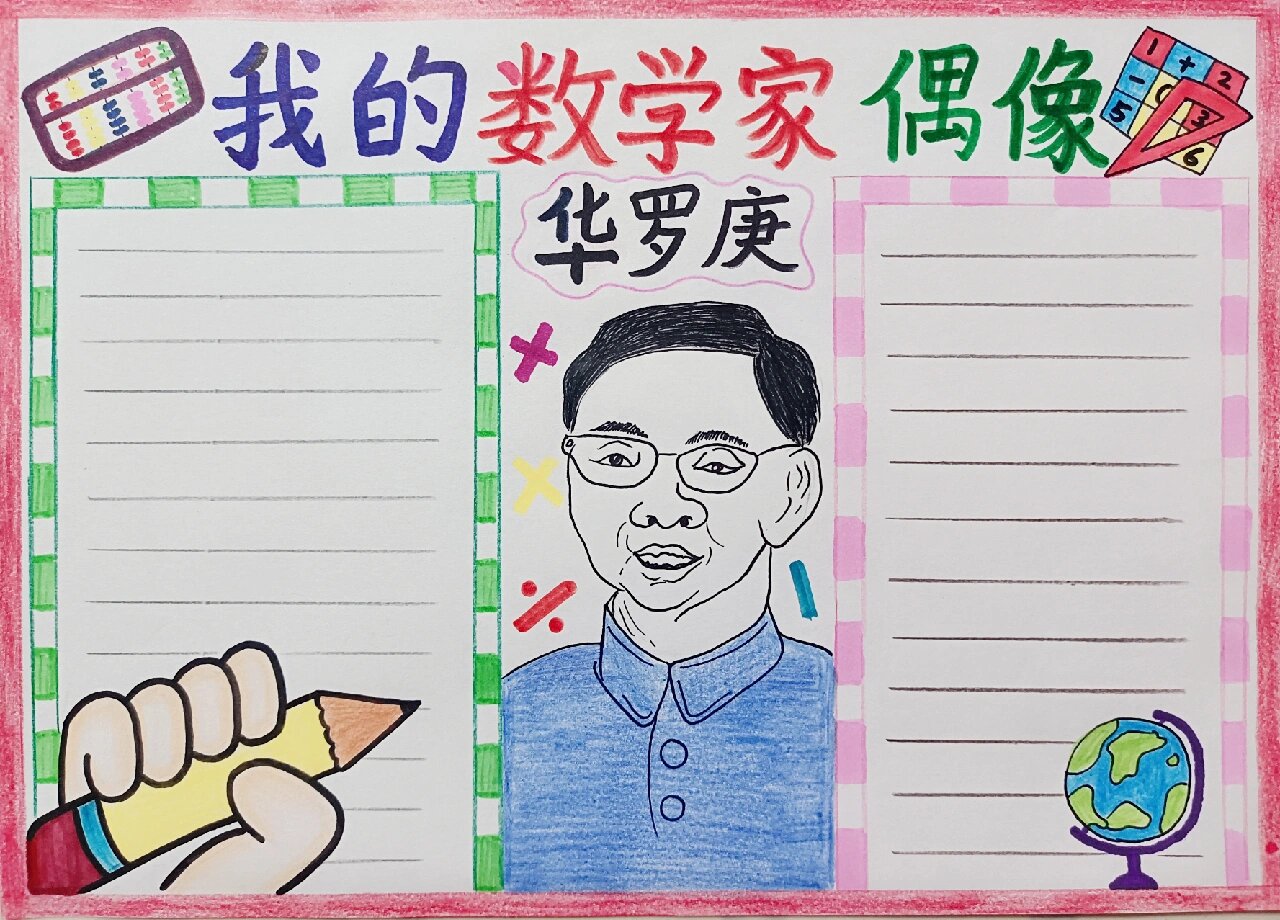 我的数学家偶像
1 + 2
- 0 3
5 6
华罗庚